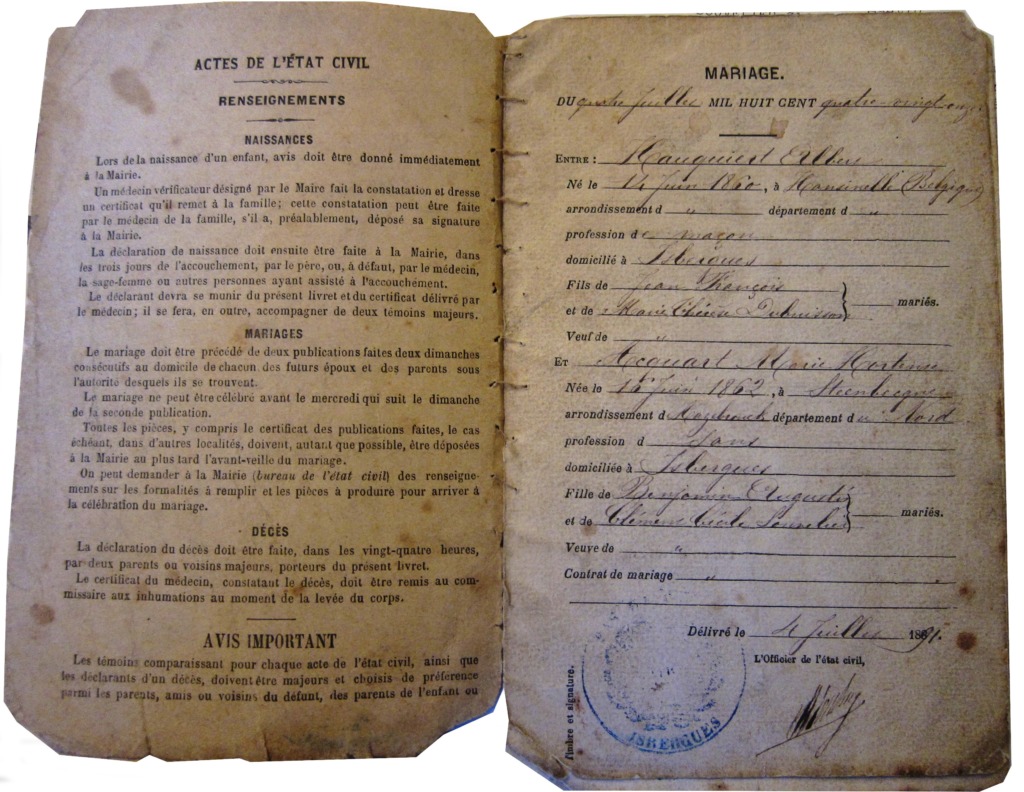 ACTES DE L'ÉTAT CIVIL
RENSEIGNEMENTS
NAISSANCES
Lors de la naissance d'un enfant, avis doit être donné immédiatement
à la Mairie.
Un médecin vérificateur désigné par le Maire fait la constatation et dresse
un certificat qu'il remet à la famille; cette constatation peut être faite
par le médecin de la famille, s'il a, préalablement, déposé sa signature
à la Mairie.
La déclaration de naissance doit ensuite être faite à la Mairie, dans
les trois jours de l'accouchement, par le père, ou, à défaut, par le médecin,
la sage-femme ou autres personnes ayant assisté à l'accouchement.
Le déclarant devra se munir du présent livret et du certificat délivré par
le médecin; il se fera, en outre, accompagner de deux témoins majeurs.
MARIAGES
Le mariage doit être précédé de deux publications faites deux dimanches
consécutifs au domicile de chacun des futurs époux et des parents sous
l'autorité desquels ils se trouvent.
Le mariage ne peut être célébré avant le mercredi qui suit le dimanche
de la seconde publication.
Toutes les pièces, y compris le certificat des publications faites, le cas
échéant, dans d'autres localités, doivent, autant que possible, être déposées
à la Mairie au plus tard l'avant-veille du mariage.
On peut demander à la Mairie (bureau de l'état civil) des renseigne-
ments sur les formalités à remplir et les pièces à produire pour arriver à
la célébration du mariage.
DÉCÈS
La déclaration du décès doit être faite, dans les vingt-quatre heures,
par deux parents ou voisins majeurs, porteurs du présent livret.
Le certificat du médecin, constatant le décès, doit être remis au com-
missaire aux inhumations au moment de la levée du corps.
AVIS IMPORTANT
Les témoins comparaissant pour chaque acte de l'état civil, ainsi que
les déclarants d'un décès, doivent être majeurs et choisis de préférence
parmi les parents, amis ou voisins du défunt, des parents de l'enfant ou
MARIAGE.
DU quatre juillet MIL HUIT CENT quatre-vingt-onze
ENTRE :
Né le 14 Juin 1860, à Marcinelle (Belgique)
arrondissement d " département d "
profession de maçon
domicilié à Isbergues
Fils de Jean François
et de Marie Thérèse Dubuisson } mariés.
Veuf de "
ET Macquart Marie Hortense
Née le 16 Juin 1862, à Steenbecque
arrondissement d'Hazebrouck département du Nord
profession d Sans
domiciliée à Isbergues
Fille de Benjamin Augustin
et de Clémence Cécile } mariés.
Veuve de "
Contrat de mariage "
Délivré le 4 Juillet 1891.
L'Officier de l'état civil,
Timbre et signature.
ISBERGUES